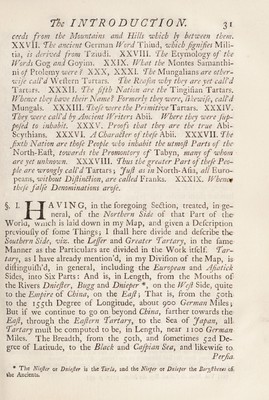 The INTRODUCTION. 31
ceeds from the Mountains and Hills which ly between them.
XXVII. The ancient German Word Thiud, which signifies Mili-
tia, is derived from Tziudi. XXVIII. The Etymology of the
Words Gog and Goyim. XXIX. What the Montes Samanthi-
ni of Ptolemy were? XXX, XXXI. The Mungalians are other-
wise call'd Western Tartars. The Reason why they are yet call'd
Tartars. XXXII. The fifth Nation are the Tingisian Tartars.
Whence they have their Name? Formerly they were, likewise, call'd
Mungals. XXXIII. These were the Primitive Tartars. XXXIV.
They were call'd by Ancient Writers Abii. Where they were sup-
posed to inhabit. XXXV. Proofs that they are the true Abi-
Scythians. XXXVI. A Character of these Abii. XXXVII. The
sixth Nation are those People who inhabit the utmost Parts of the
North-East, towards the Promontory of Tabyn, many of whom
are yet unknown. XXXVIII. Thus the greater Part of these Peo-
ple are wrongly call'd Tartars; Just as in North-Asia, all Euro-
peans, without Distinction, are called Franks. XXXIX. Whence
these false Denominations arose.
§. I. HAVING, in the foregoing Section, treated, in ge-
neral, of the Northern Side of that Part of the
World, which is laid down in my Map, and given a Description
previously of some Things; I shall here divide and describe the
Southern Side, viz. the Lesser and Greater Tartary, in the same
Manner as the Particulars are divided in the Work itself. Tar-
tary, as I have already mention'd, in my Division of the Map, is
distinguish'd, in general, including the European and Asiatick
Sides, into Six Parts: And is, in Length, from the Mouths of
the Rivers Dniester, Bugg and Dnieper *, on the West Side, quite
to the Empire of China, on the East; That is, from the 50th
to the 155th Degree of Longitude, about 900 German Miles;
But if we continue to go on beyond China, farther towards the
East, through the Eastern Tartary, to the Sea of Japan, all
Tartary must be computed to be, in Length, near 1100 German
Miles. The Breadth, from the 50th, and sometimes 52d De-
gree of Latitude, to the Black and Caspian Sea, and likewise to
Persia.
* The Niester or Dniester is the Turla, and the Nieper or Dnieper the Borysthenes of
the Ancients.